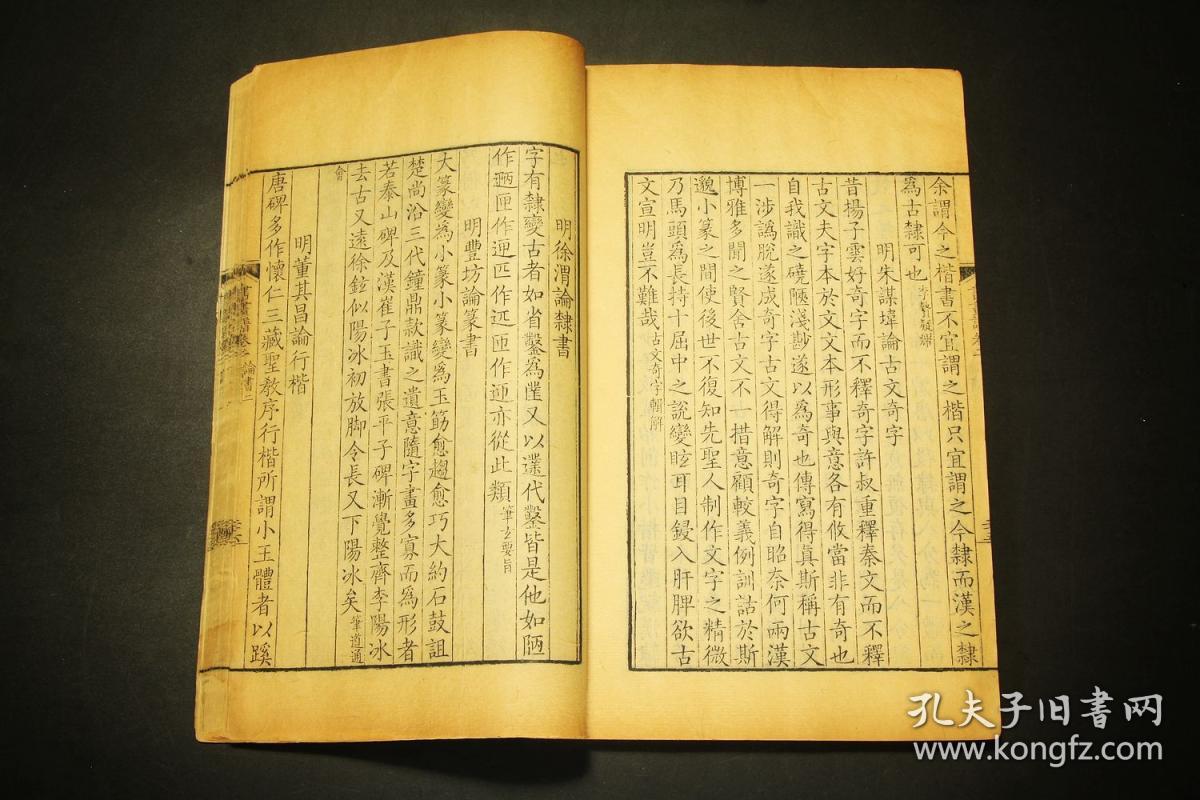 余謂今之楷書不宜謂之楷只宜謂之今隸而漢之隸
為古隸可也
明朱謀㙔論古文奇字
昔揚子雲好奇字而不釋奇字許叔重釋秦文而不釋
古文夫字本於文文本形事與意各有攸當非有奇也
自我識之磽陋淺尠遂以為奇也傳寫得真斯稱古文
一涉譌脫遂成奇字古文得解則奇字自昭奈何兩漢
博雅多聞之賢舍古文不一措意顧較義例訓詁於斯
邈小篆之間使後世不復知先聖人制作文字之精微
乃馬頭為長持十屈中之說變眩耳目鋟入肝脾欲古
文宣明豈不難哉 古文奇字輯解
明徐渭論隸書
字有隸變古者如省鑿為凿又以𥽦代鑿皆是他如陋
作𨔣匝作迊匹作𨒌匝作迊亦從此類 筆玄要旨
明豐坊論篆書
大篆變為小篆小篆變為玉筯愈趨愈巧大約石鼓詛
楚尚沿三代鐘鼎款識之遺意隨字畫多寡而為形者
若泰山碑及漢崔子玉書張平子碑漸覺整齊李陽冰
去古又遠徐鉉似陽冰初放脚令長又下陽冰矣 筆道通
會
明董其昌論行楷
唐碑多作懷仁三藏聖教序行楷所謂小王體者以蹊
論書二
孔夫子旧书网
www.kongfz.com